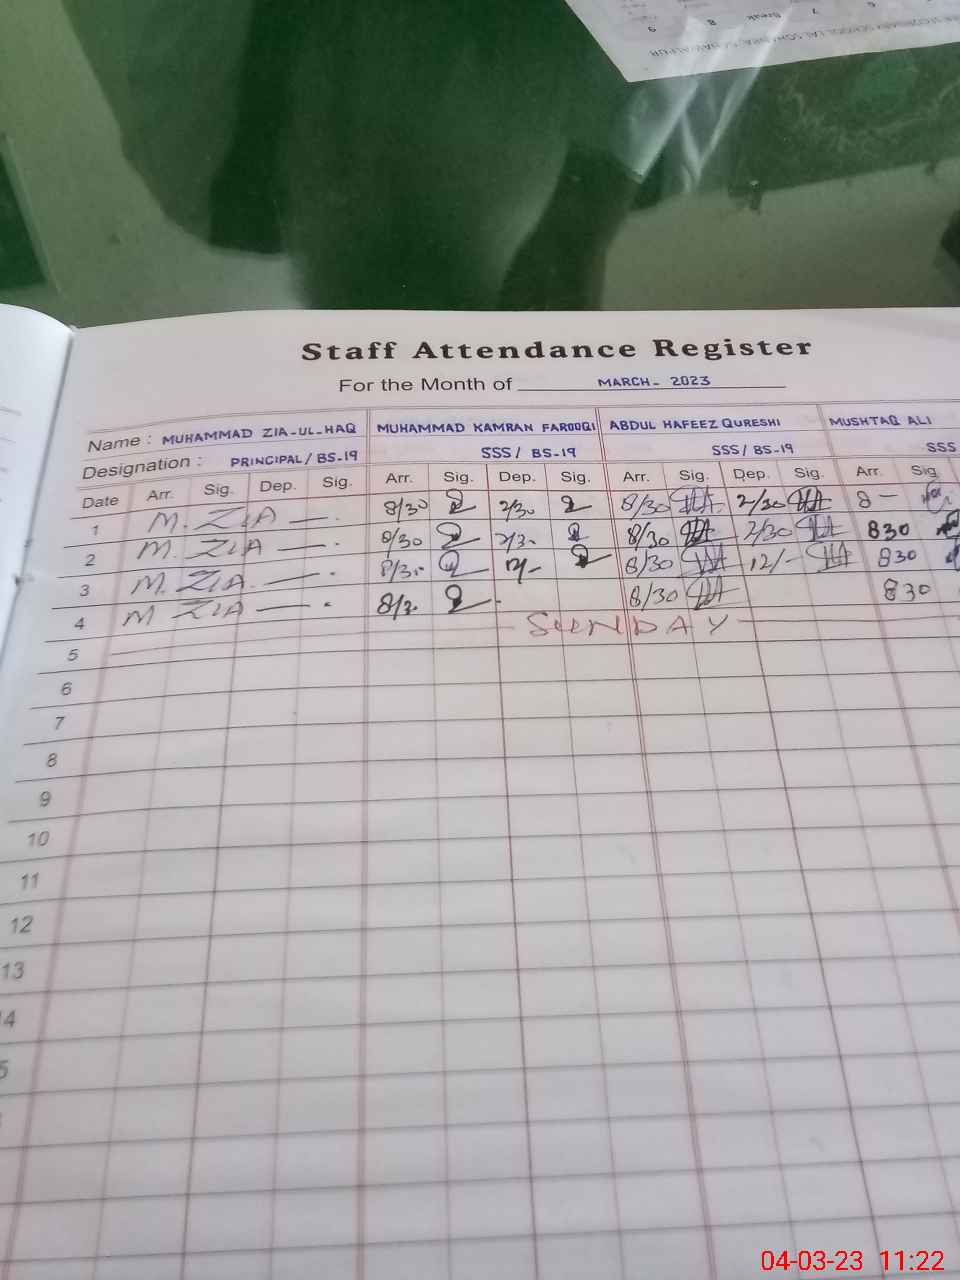 9 8 Break 7 6
Staff Attendance Register
For the Month of MARCH - 2023
Name : MUHAMMAD ZIA-UL-HAQ MUHAMMAD KAMRAN FAROOQI ABDUL HAFEEZ QURESHI MUSHTAQ ALI
Designation : PRINCIPAL / BS-19 SSS / BS-19 SSS / BS-19 SSS
Date Arr. Sig. Dep. Sig. Arr. Sig. Dep. Sig. Arr. Sig. Dep. Sig. Arr. Sig
1 M. ZIA —. 8/30 2/30 8/30 2/30 8 -
2 M. ZIA —. 8/30 2/3- 8/30 2/30 830
3 M. ZIA. —. 8/3- 12/- 8/30 12/- 830
4 M ZIA —. 8/3. 8/30 830
5 SUNDAY
6
7
8
9
10
11
12
13
4
5
04-03-23 11:22